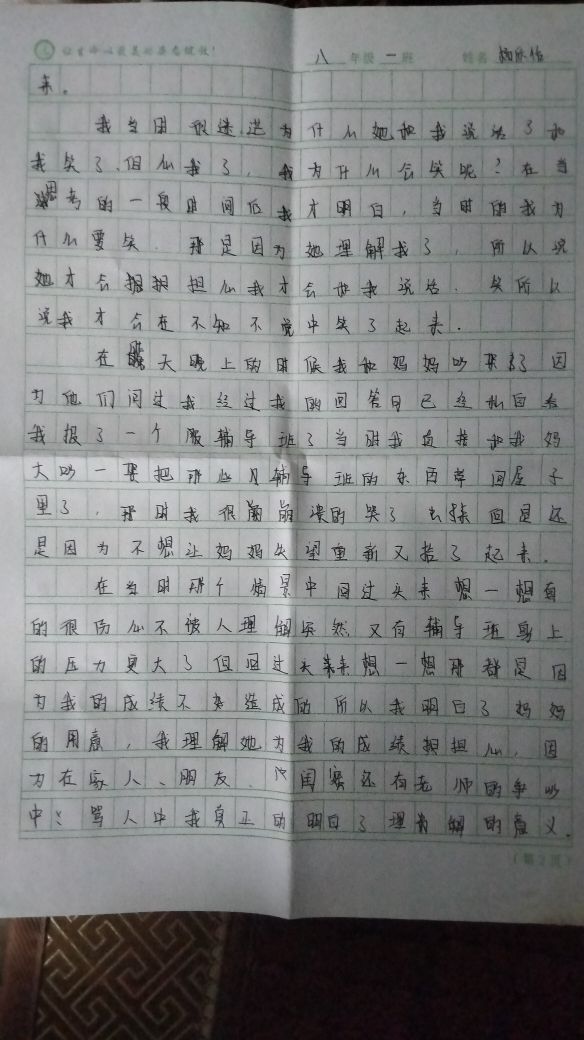 让生命以最美的姿态绽放! 八 年级 一 班 姓名
来。
我当困 为什么她和我说话了和
我笑了,但心我了,我为什么会笑呢?在当
思考的一段时间后我才明白,当时的我为
什么要笑.那是因为她理解我了,所以说
她才会担心我才会和我说话.笑所以
说我才会在不知不觉中笑了起来.
在 天晚上的时候我和妈妈吵架了因
为他们问过我经过我的回答自己已经
我报了一个 辅导班了当时我直接和我妈
大吵一架把那些辅导班的东西拿回屋子
里了,那时我很崩溃的哭了 回是还
是因为不想让妈妈失望重新又拾了起来.
在当时那个情景中回过头来想一想真
的很伤心不被人理解突然又有辅导班身上
的压力更大了但回过头来想一想那都是因
为我的成绩不好造成的所以我明白了妈妈
的用意,我理解她为我的成绩担心,因
为在家人、朋友、 还有老师的争吵
中、骂人中我真正的明白了理解的意义.
(第2页)